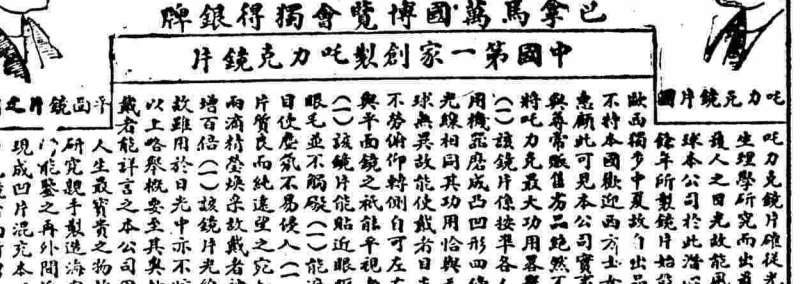 巴拿馬萬國博覽會獨得銀牌
中國第一家創製吒力克鏡片
吒力克鏡片圖
吒力克鏡片確從光
生理學研究而出最
護人之目光故能風
球本公司於此潛心
餘年所製鏡片始發
歐西獨步中夏故自出品
不特本國歡迎西方士女
惠顧此可見本公司實
與尋常販售劣品絕然不
將吒力克最大功用略舉
(一)該鏡片係按準各人
用機器磨成凸凹形四
光線相同其功用恰與
球無異故能使戴者目
不勞俯仰轉側自可左右
與平面鏡之祇能平視
(一)該鏡片能貼近眼
眼毛並不觸礙(一)能
目使塵氛不易侵入(一)
片質良而純遠望之宛
兩滴精瑩煥采故戴者
增百倍(一)該鏡片光
故雖用於日光中亦不
以上略舉概要至其奧妙
戴者能詳言之本公司
平面鏡片之
人生最寶貴之物
研究親手製造海
能鑒之再外間
現成凹片混充本